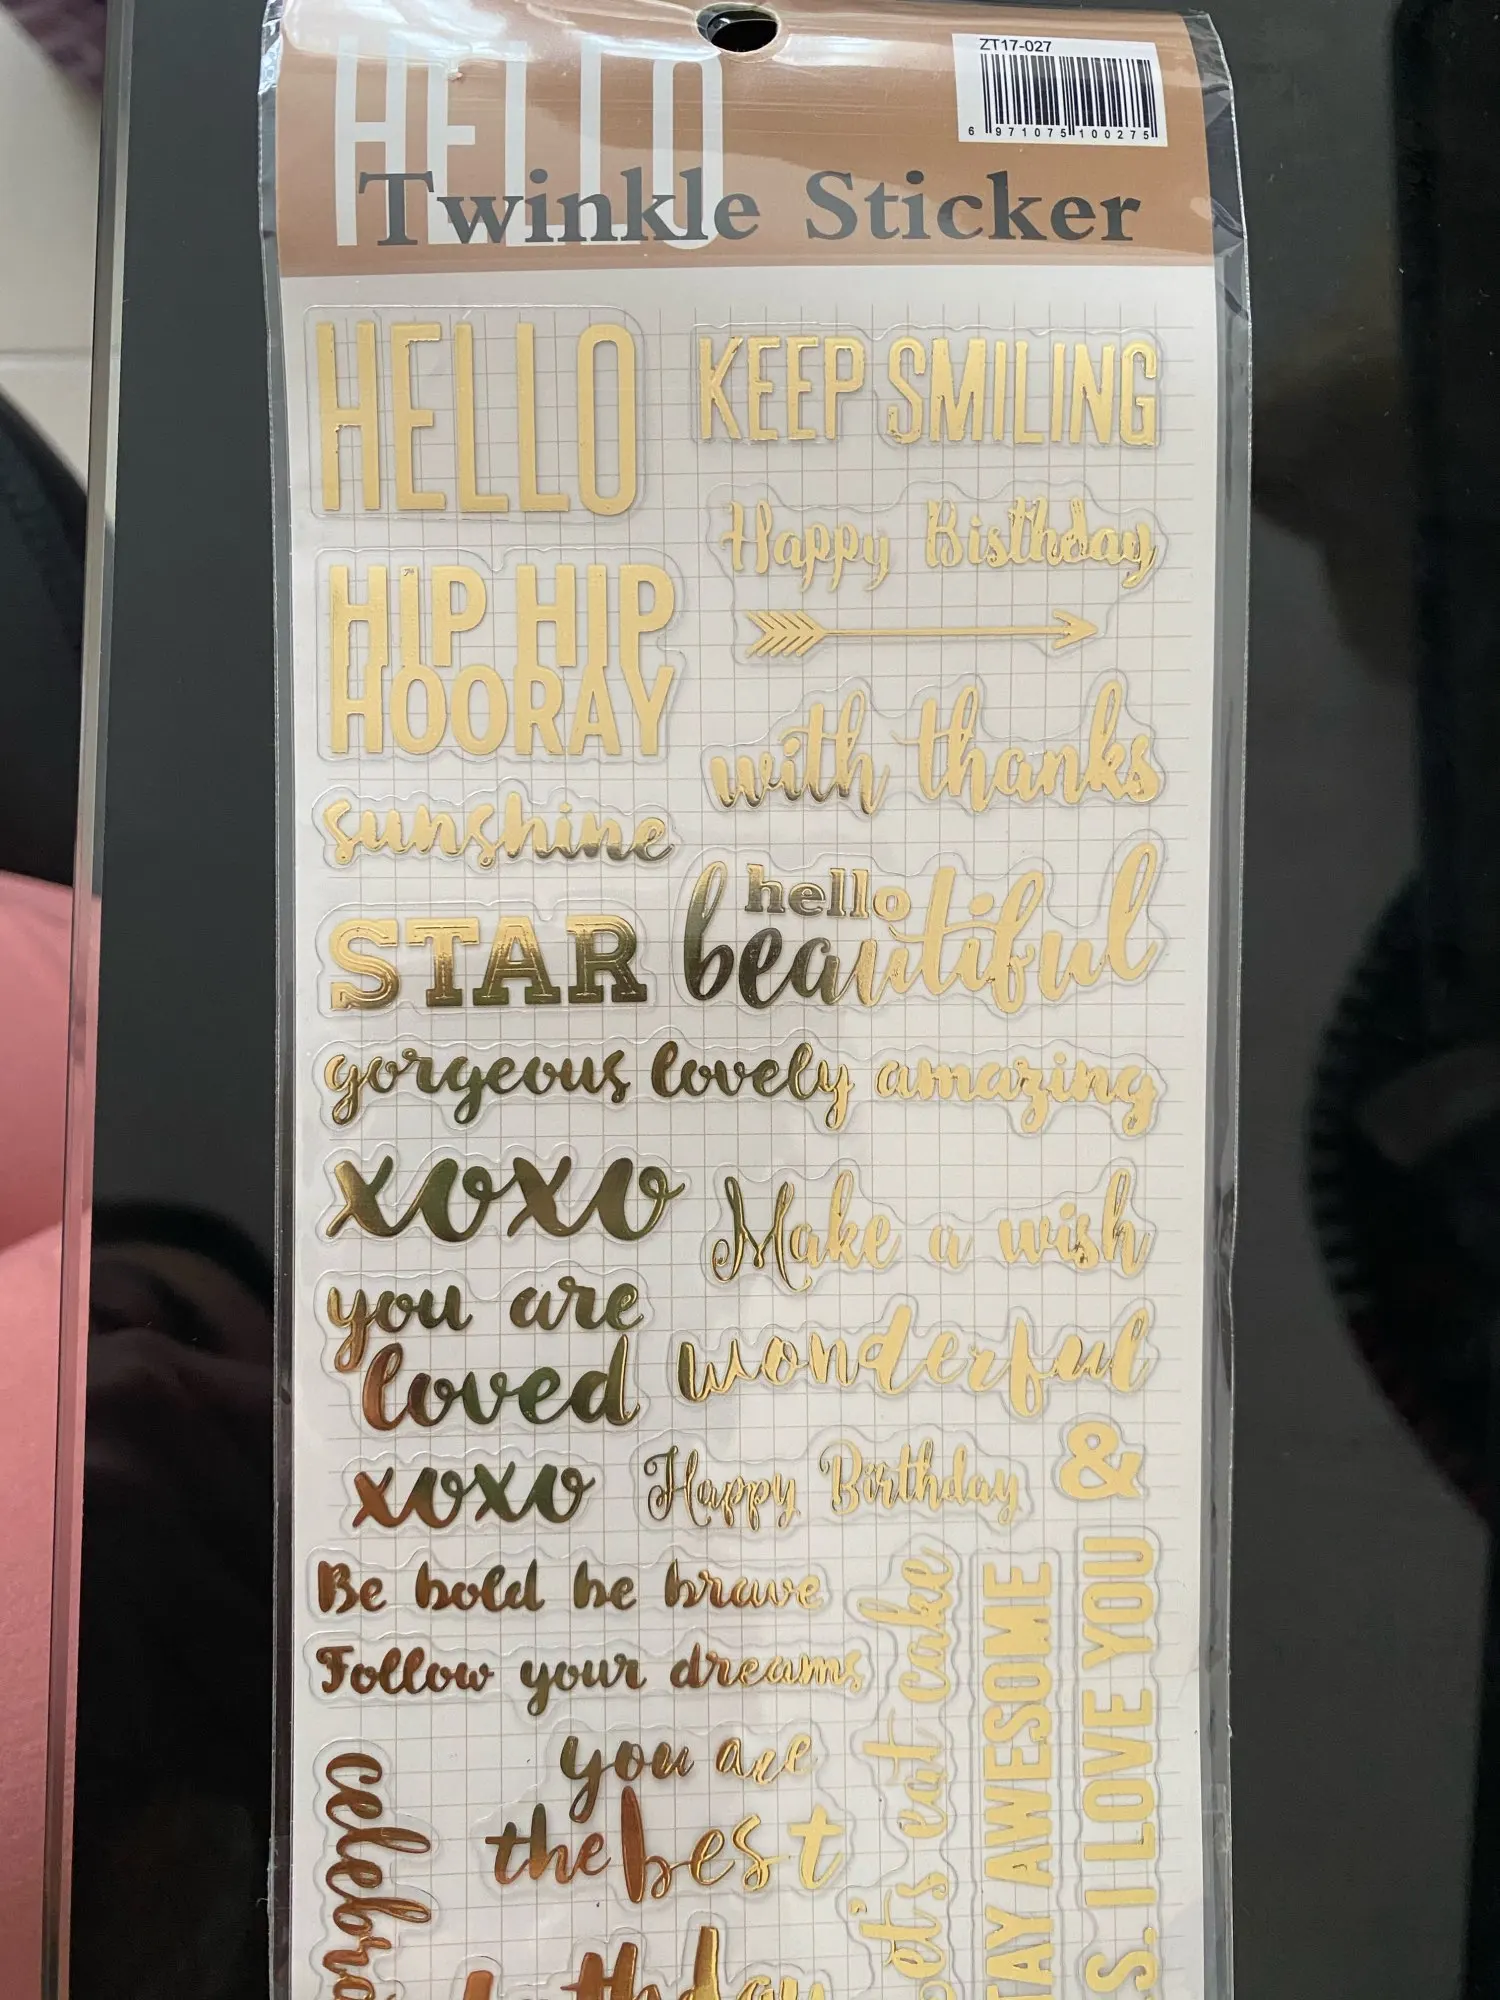 HELLO
ZT17-027
6 971075 100275
Twinkle Sticker
HELLO
KEEP SMILING
Happy Bisthday
HIP HIP
HOORAY
with thanks
sunshine
hello
beautiful
STAR
gorgeous lovely amazing
xoxo
Make a wish
you are
loved
wonderful
&
xoxo
Happy Birthday
Be bold be brave
Follow your dreams
you are
the best
let's eat cake
TAY AWESOME
S. I LOVE YOU